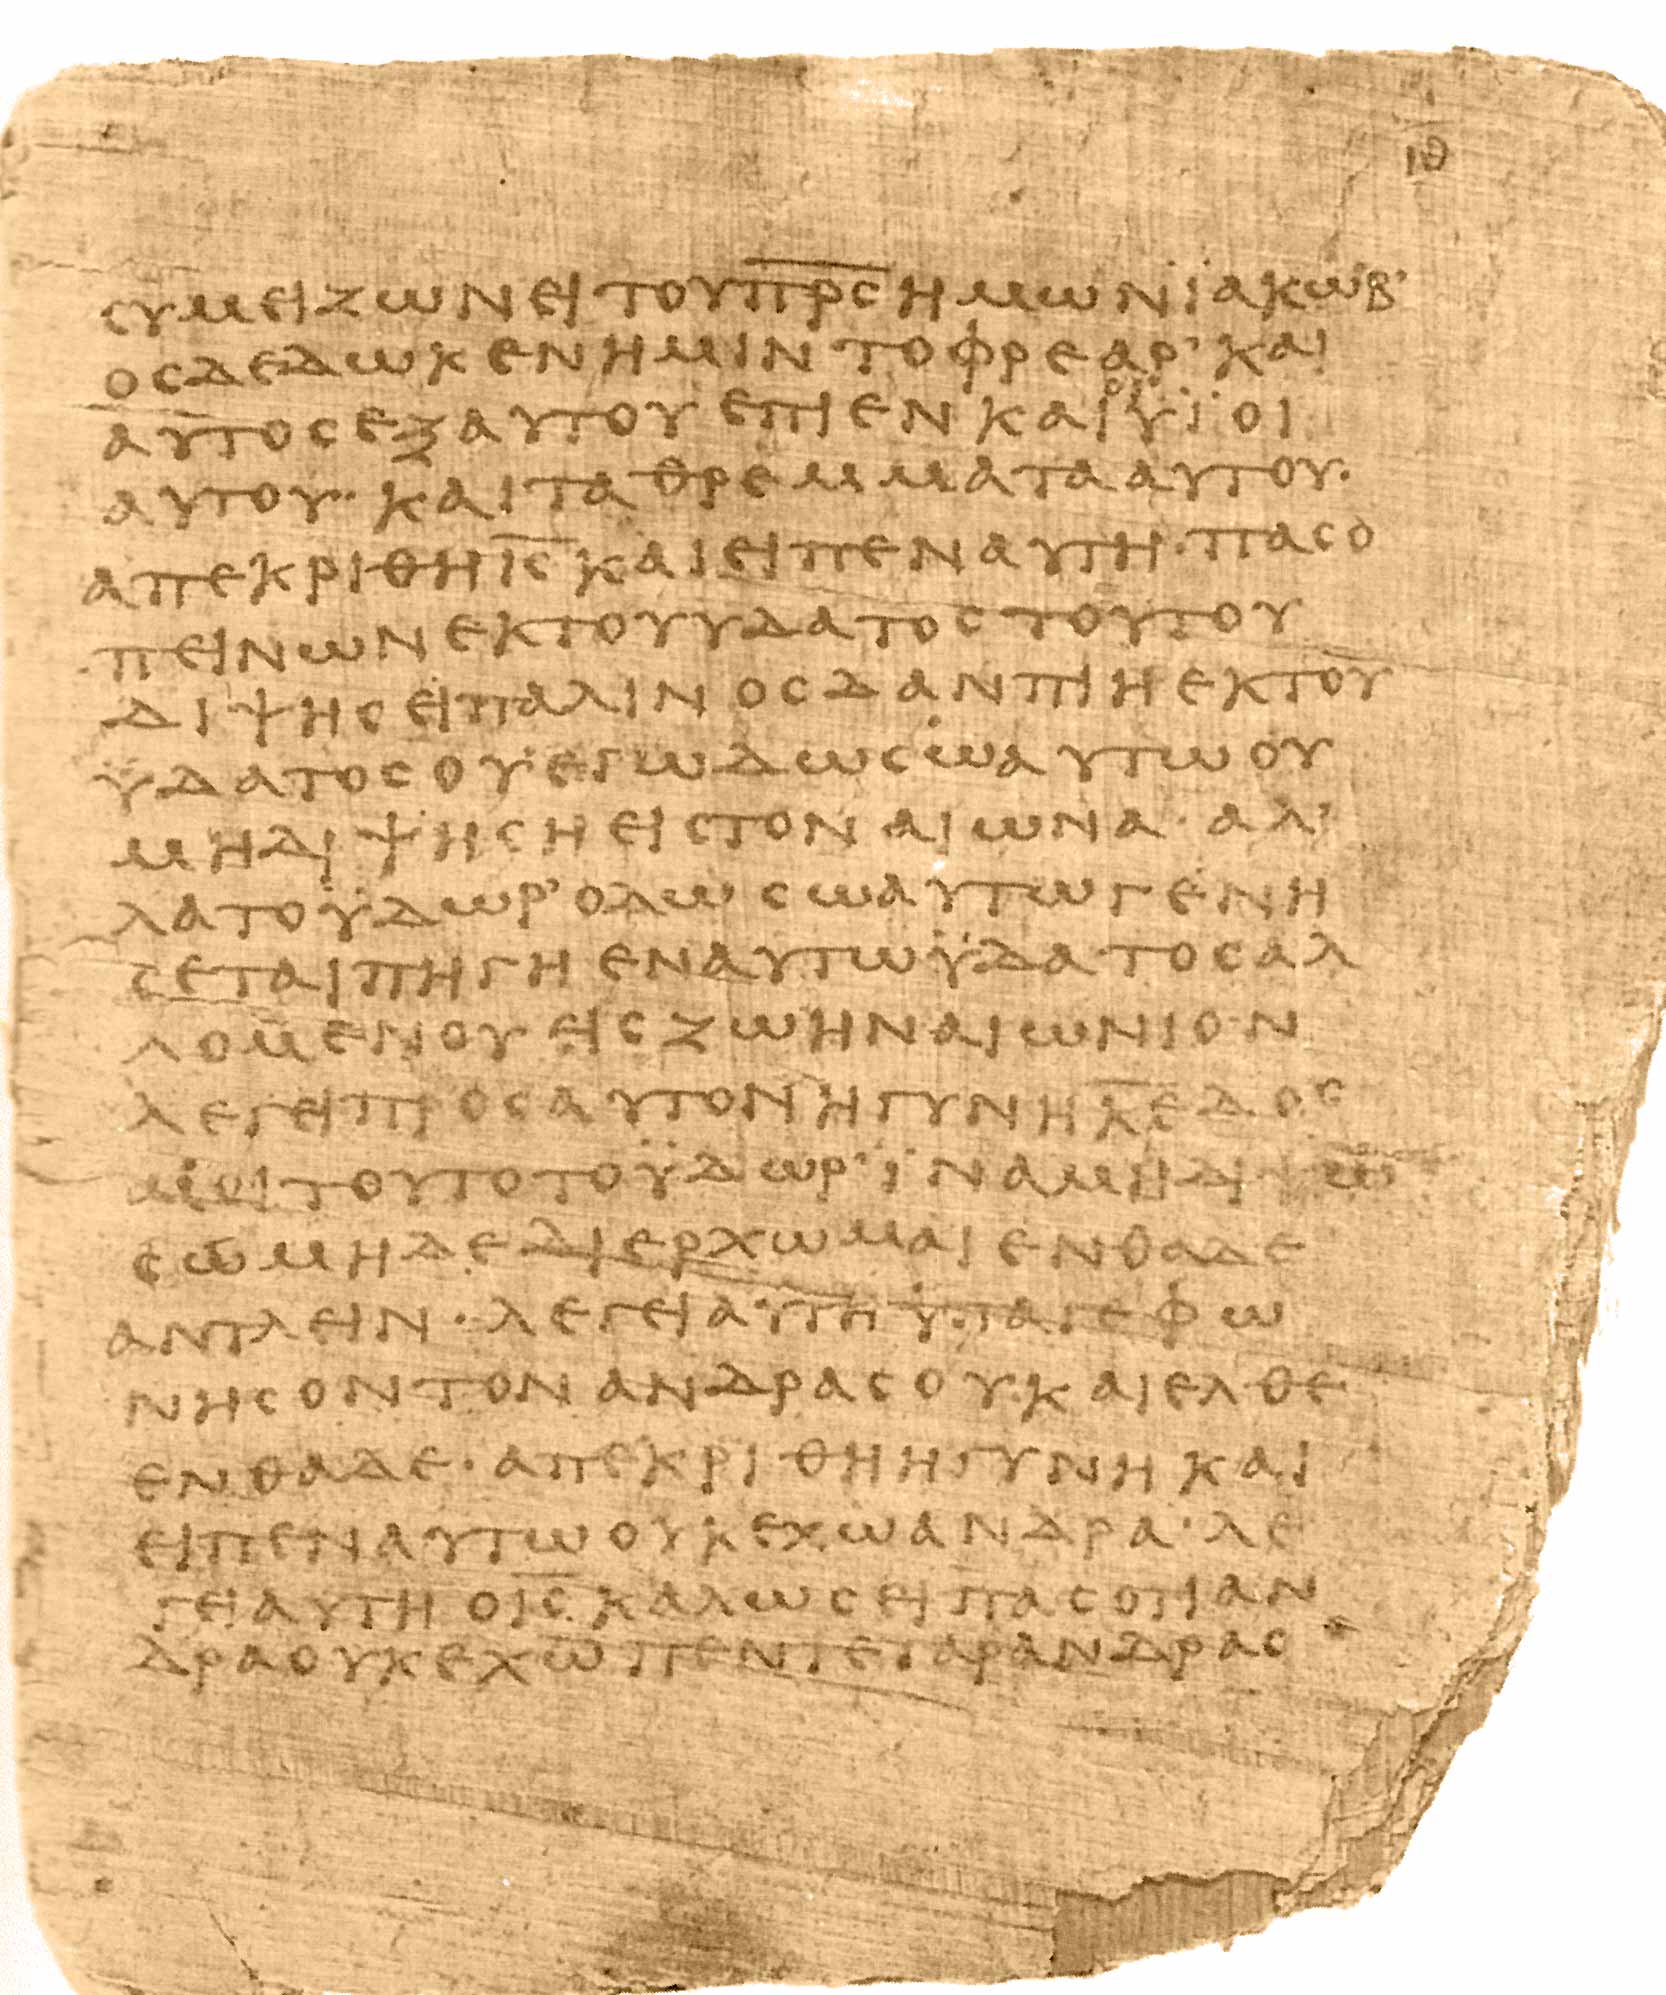 ιθ
ϲυμειζωνειτουπ̅ρ̅ϲ̅ημωνϊακωβ᾽
οϲδεδωκενημιντοφρεαρ᾽και
αυτοϲεξαυτουεπιενκαιοιϋϊοι
αυτου·καιταθρεμματααυτου·
απεκριθηι̅ϲ̅καιειπεναυτη·παϲο
πεινωνεκτουυδατοϲτουτου
διψηϲειπαλινοϲδανπιηεκτου
ϋδατοϲουεγωδωϲωαυτωου
μηδιψηϲηειϲτοναιωνα·αλ᾽
λατοϋδωρ᾽οδωϲωαυτωγενη
ϲεταιπηγηεναυτωϋδατοϲαλ
λομενουειϲζωηναιωνιον
λεγειπροϲαυτονηγυνηκ̅ε̅δοϲ
μοιτουτοτοϋδωρ᾽ϊναμηδιψω
ϲωμηδεδιερχωμαιενθαδε
αντλειν·λεγειαυτηϋπαγεφω
νηϲοντονανδραϲουκαιελθε
ενθαδε·απεκριθηηγυνηκαι
ειπεναυτωουκεχωανδρα·λε
γειαυτηοι̅ϲ̅καλωϲειπαϲοτιαν
δραουκεχωπεντεγαρανδραϲ